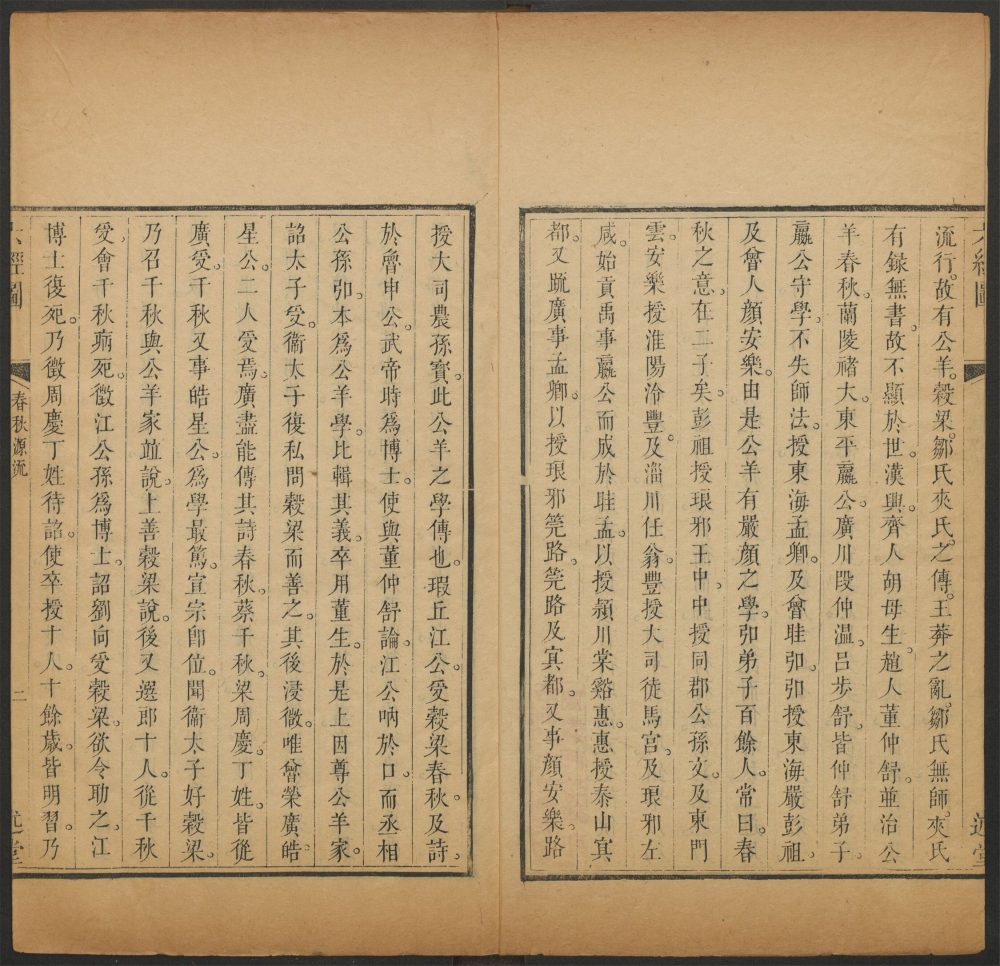 流行。故有公羊。穀梁。鄒氏。夾氏。之傳。王莽之亂。鄒氏無師。夾氏
有録無書。故不顯於世。漢興。齊人胡母生。趙人董仲舒。並治公
羊春秋。蘭陵禇大。東平嬴公。廣川段仲溫。吕歩舒。皆仲舒弟子。
嬴公守學。不失師法。授東海孟卿。及魯眭弘。弘授東海嚴彭祖。
及魯人顔安樂。由是公羊有嚴顔之學。弘弟子百餘人。常曰。春
秋之意。在二子矣。彭祖授琅邪王中。中授同郡公孫文。及東門
雲。安樂授淮陽泠豐。及淄川任翁。豐授大司徒馬宫。及琅邪左
咸。始貢禹事嬴公。而成於眭孟。以授潁川棠谿惠。惠授泰山冥
都。又䟽廣事孟卿。以授琅邪筦路。筦路及冥都。又事顔安樂。路
授大司農孫寶。此公羊之學傳也。瑕丘江公。受穀梁春秋。及詩。
於魯申公。武帝時爲博士。使與董仲舒論。江公吶於口。而丞相
公孫弘。本爲公羊學。比輯其義。卒用董生。於是上因尊公羊家。
詔太子受。衞太子復私問穀梁而善之。其後浸微。唯魯榮廣。皓
星公。二人受焉。廣盡能傳其詩春秋。蔡千秋。梁周慶。丁姓。皆從
廣受。千秋又事皓星公。爲學最篤。宣宗卽位。聞衞太子好穀梁。
乃召千秋與公羊家竝說。上善穀梁說。後又選郎十人。從千秋
受。會千秋病死。徴江公孫爲博士。詔劉向受穀梁。欲令助之。江
博士復死。乃徴周慶丁姓待詔。使卒授十人。十餘歳。皆明習。乃
六經圖
春秋源流
二